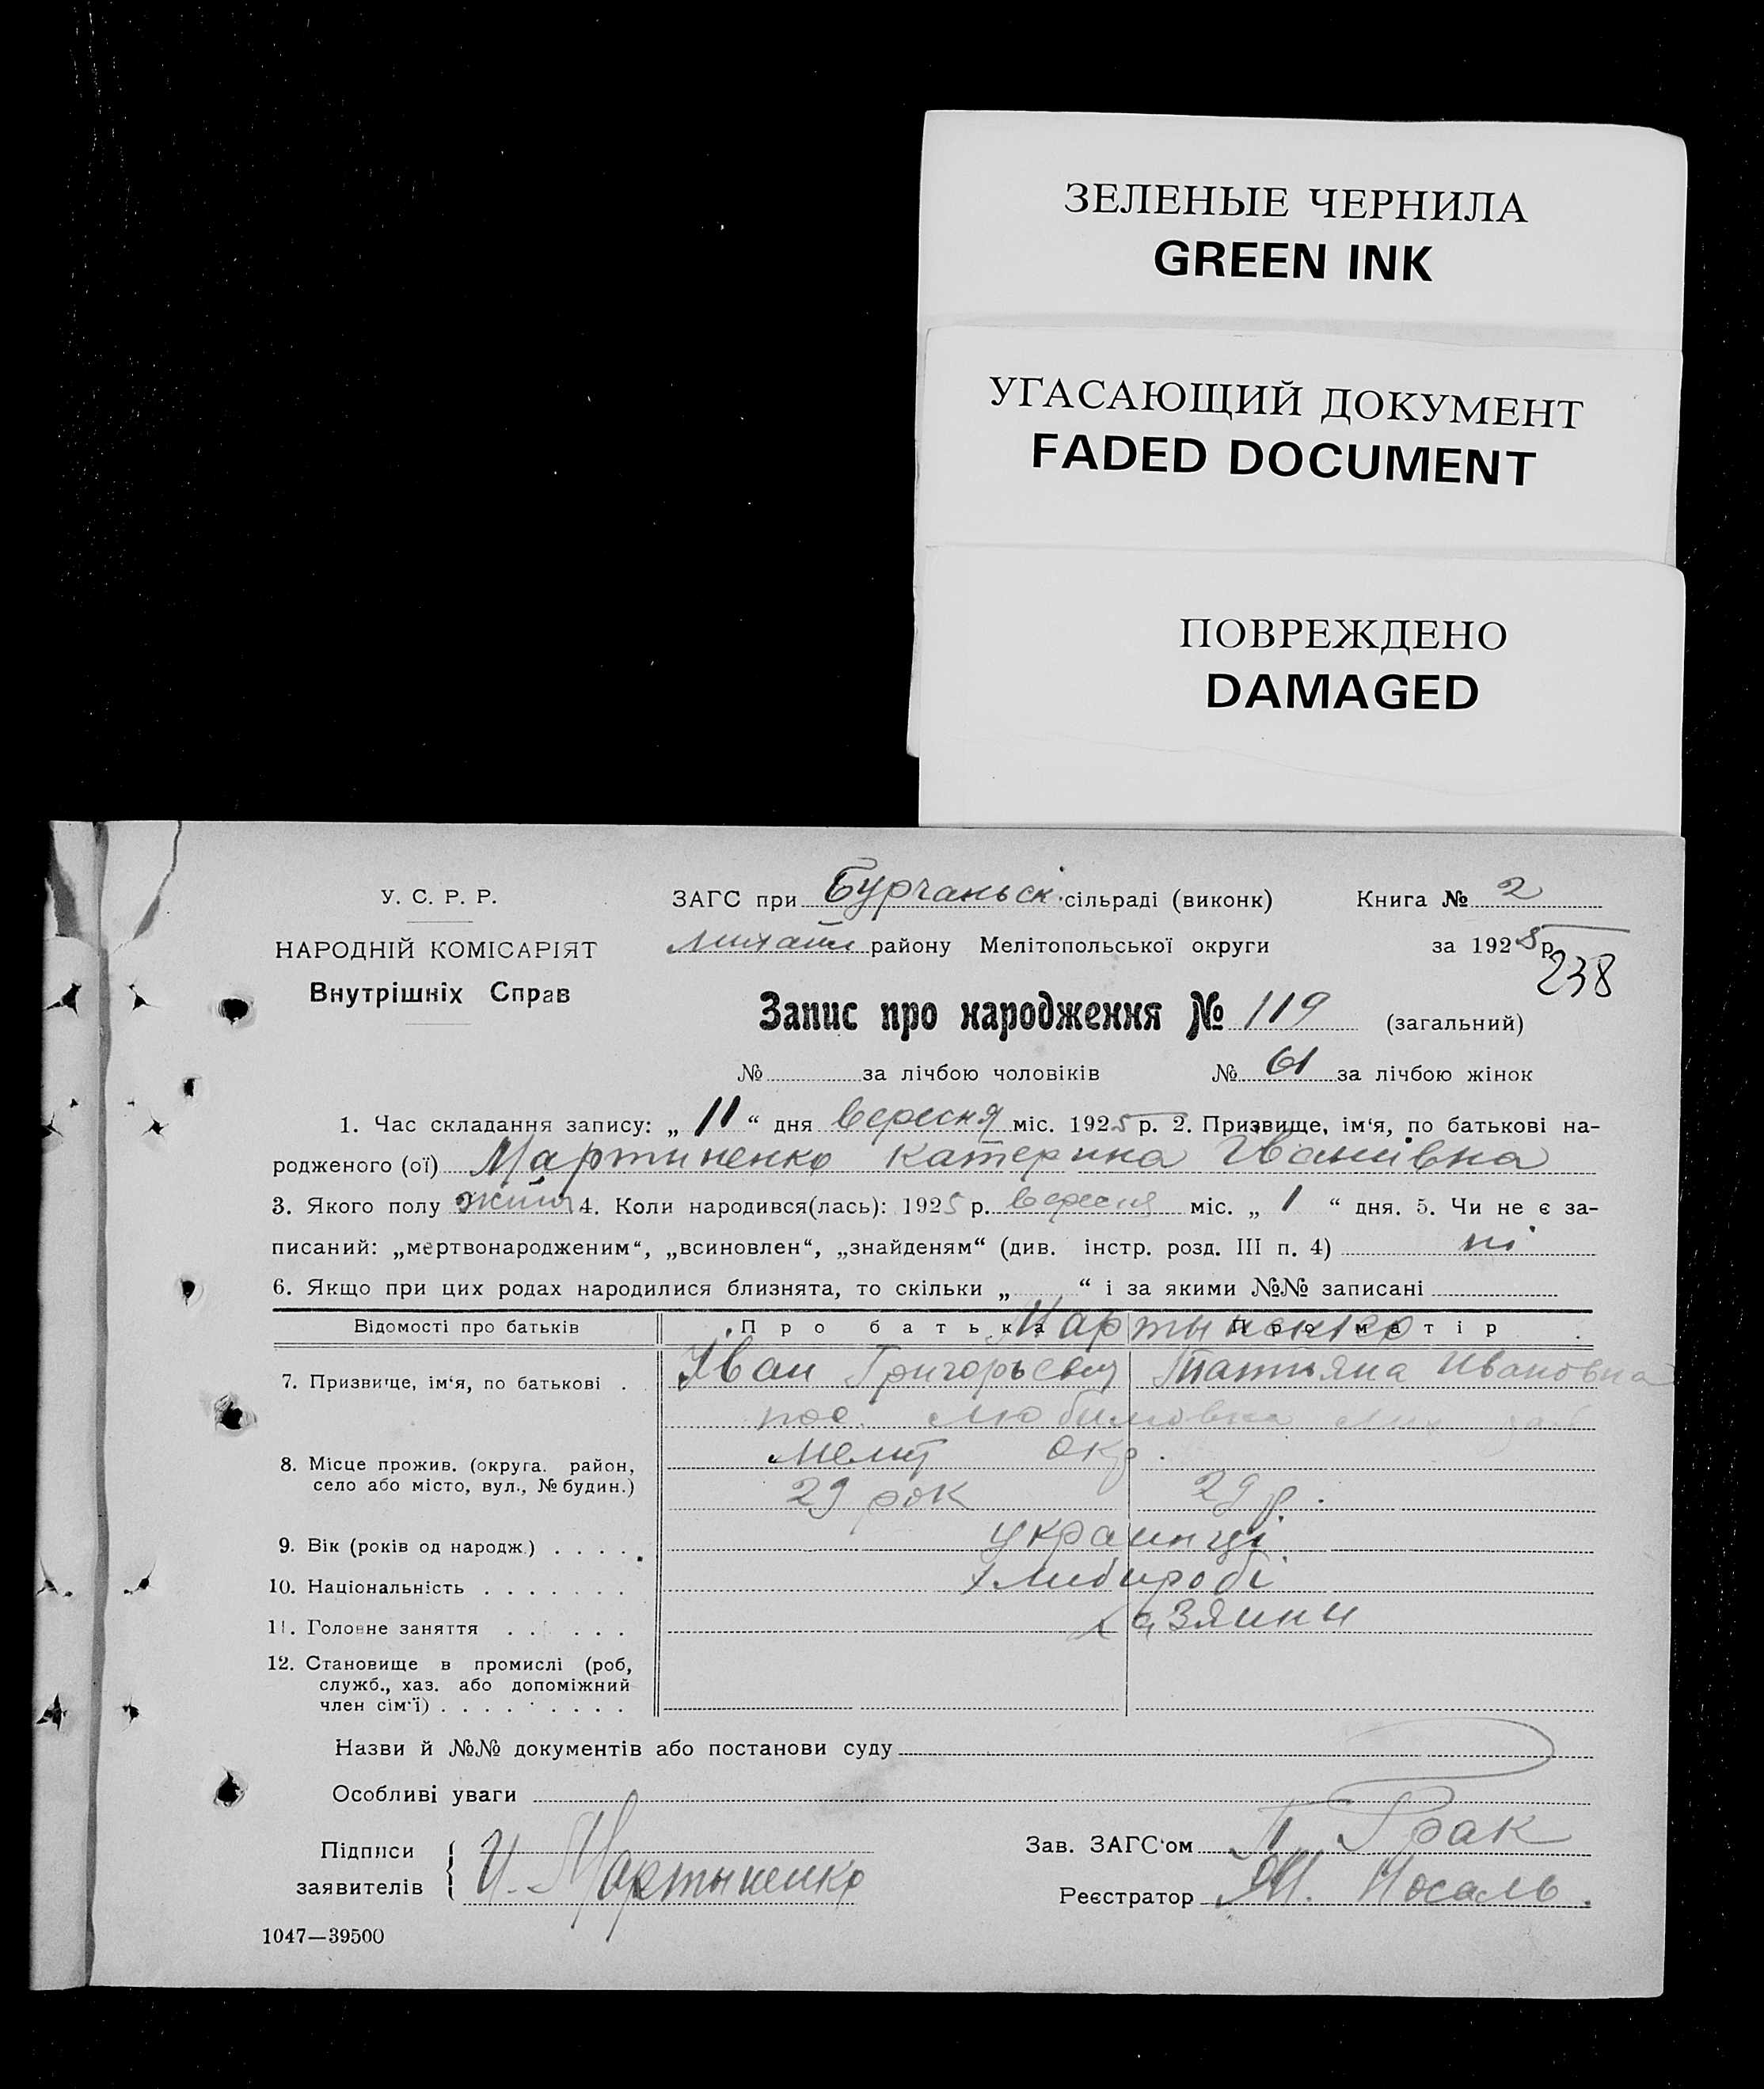 ЗЕЛЕНЫЕ ЧЕРНИЛА
GREEN INK
УГАСАЮЩИЙ ДОКУМЕНТ
FADED DOCUMENT
ПОВРЕЖДЕНО
DAMAGED
У. С. Р. Р.
НАРОДНІЙ КОМІСАРІЯТ
Внутрішніх Справ
ЗАГС при Бурчаньск. сільраді (виконк) Книга № 2
Михайл району Мелітопольської округи за 1925 р.
238
Запис про народження № 119 (загальний)
№ за лічбою чоловіків № 61 за лічбою жінок
1. Час складання запису: „ 11 “ дня вересня міс. 1925 р. 2. Призвище, ім‘я, по батькові на-
родженого (ої) Мартиненко Катерина Іванівна
3. Якого полу 4. Коли народився(лась): 1925 р. вересня міс. „ 1 “ дня. 5. Чи не є за-
писаний: „мертвонародженим“, „всиновлен“, „знайденям“ (див. інстр. розд. III п. 4) ні
6. Якщо при цих родах народилися близнята, то скільки „ “ і за якими №№ записані
Відомості про батьків Про батька Про матір
Мартыненко
7. Призвище, ім‘я, по батькові . Іван Григорьевич Татьяна Ивановна
пос. Любимовка Мих
8. Місце прожив. (округа. район,
село або місто, вул., № будин.)
Мелит окр.
29 рок 29 р.
9. Вік (років од народж.) . . . . .
украинці
10. Національність . . . . . . .
Хлибироби
11. Головне заняття . . . . . .
хазяини
12. Становище в промислі (роб,
служб., хаз. або допоміжний
член сім‘ї) . . . . . . . . .
Назви й №№ документів або постанови суду
Особливі уваги
Підписи
заявителів
И. Мартыненко
Зав. ЗАГС‘ом
Реєстратор Носаль.
1047—39500